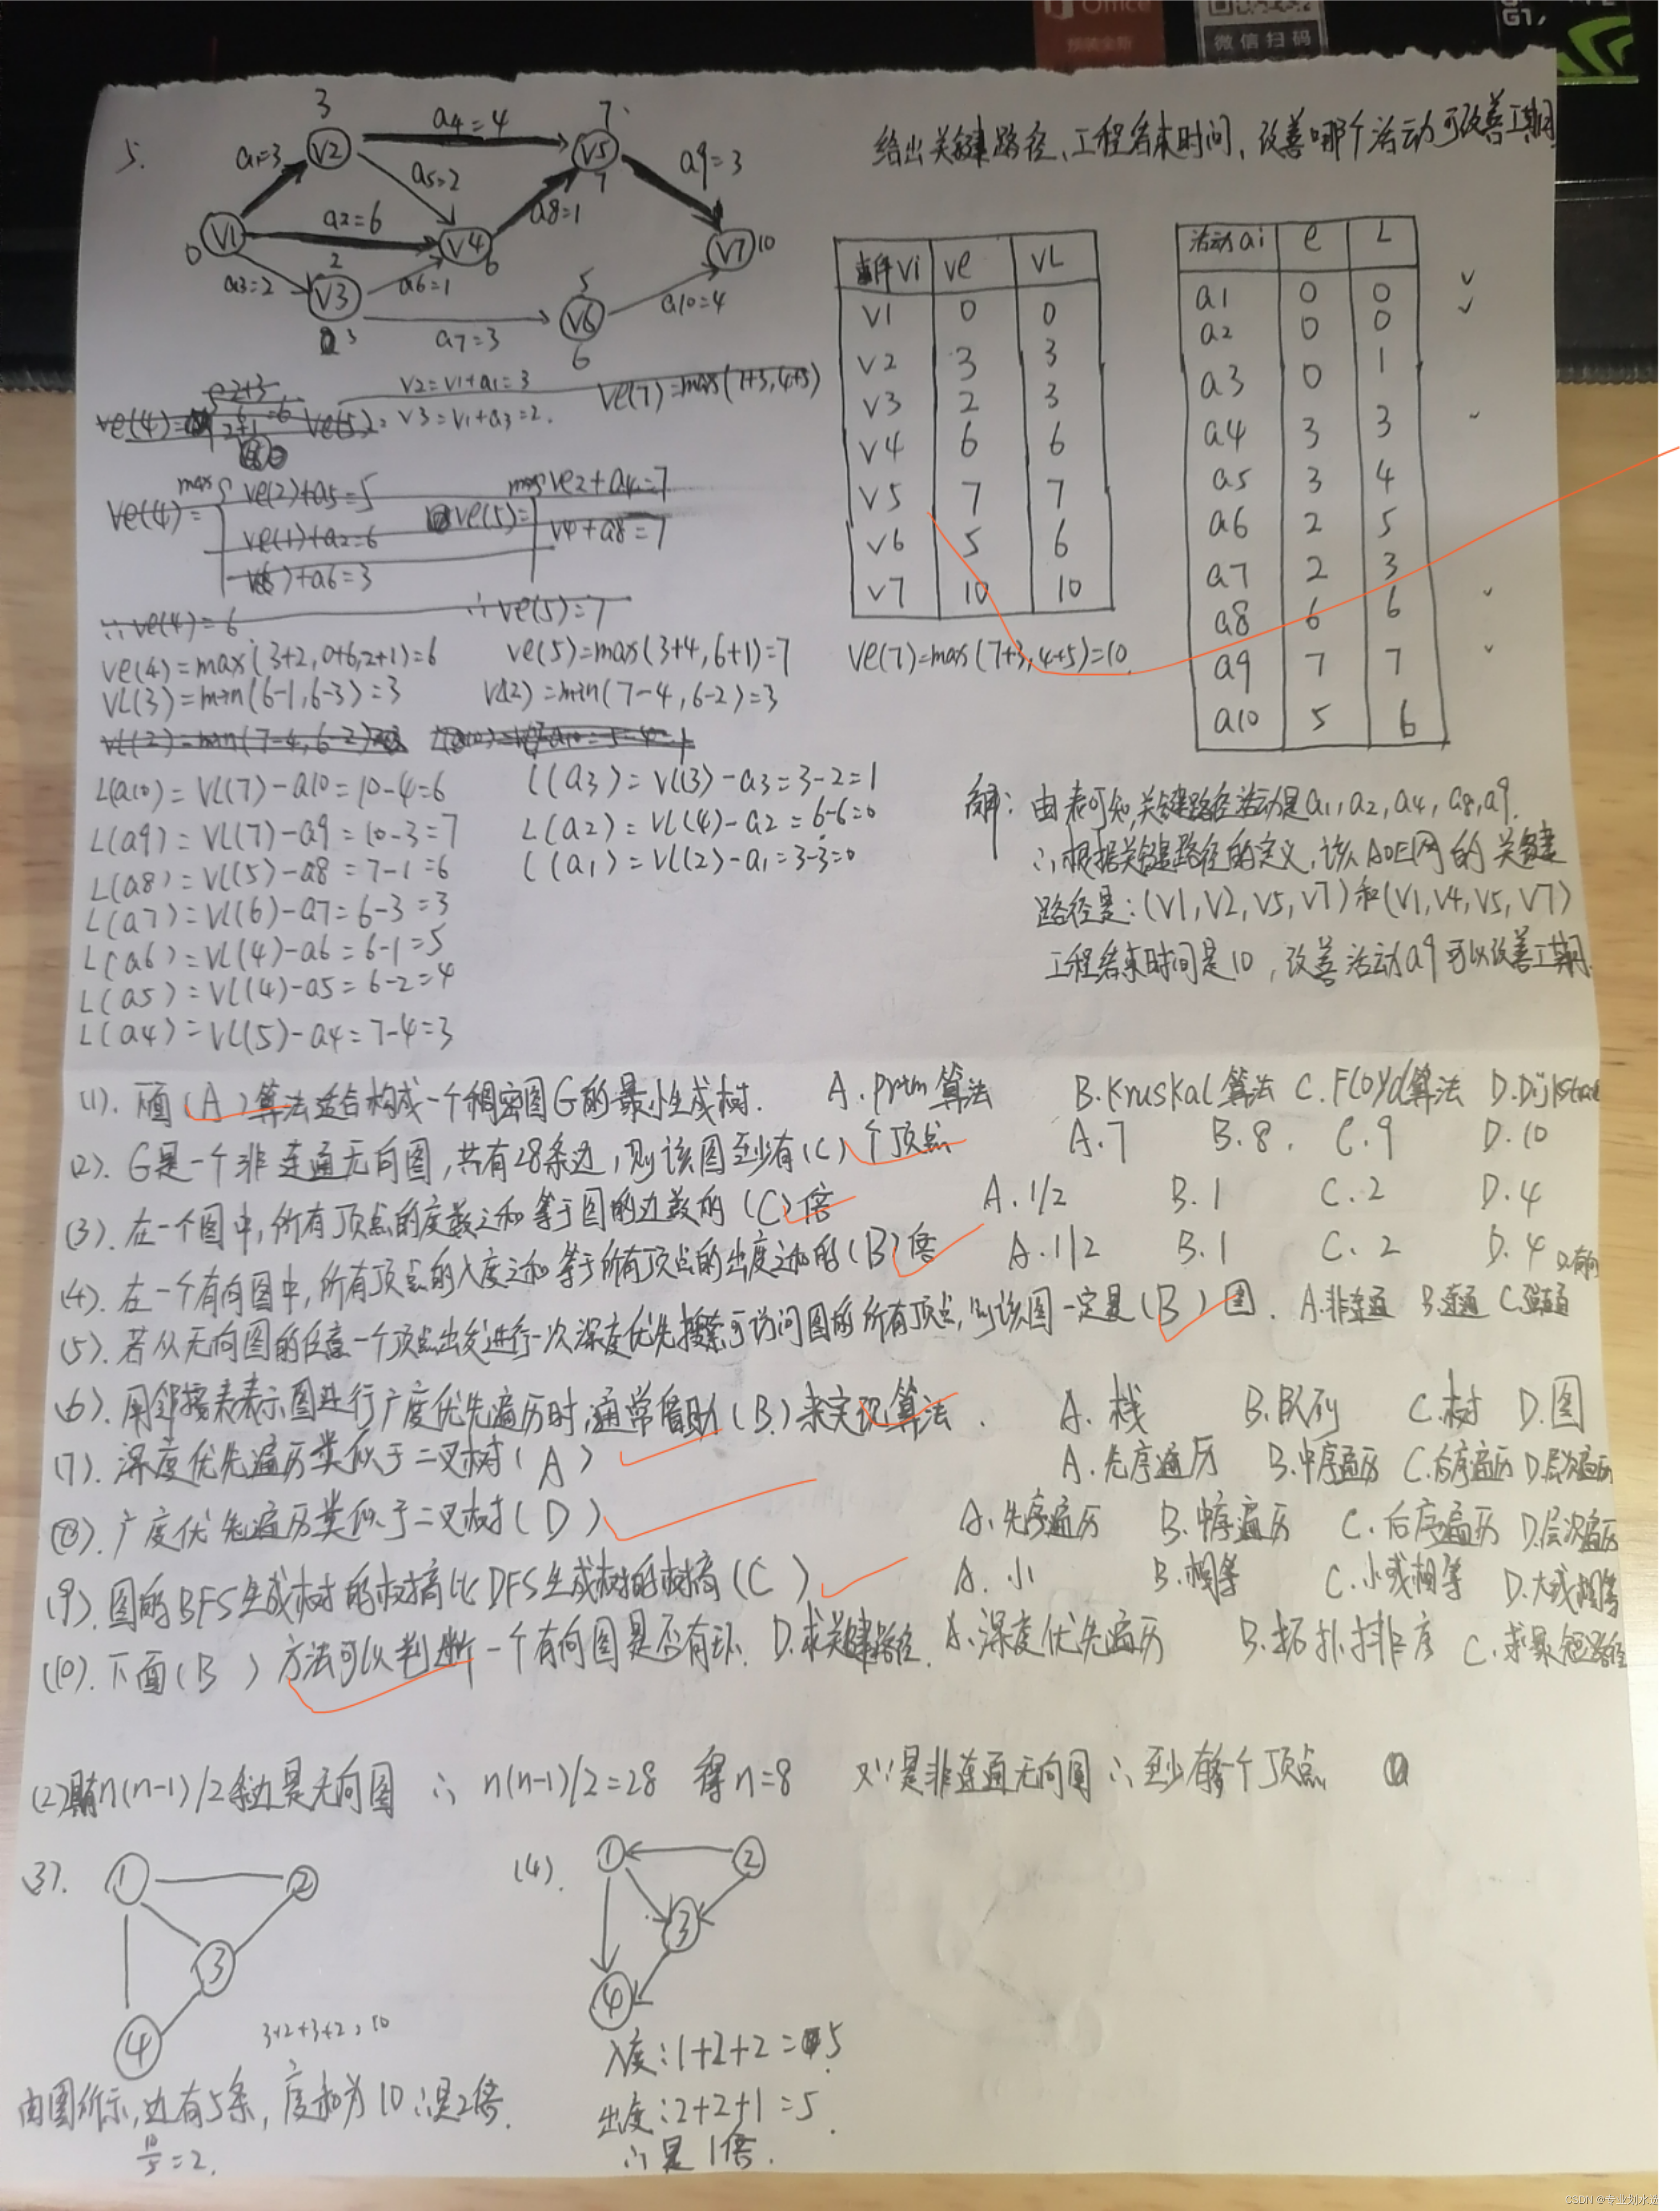 Office
预装全新
微信扫码
G1,
5.
给出关键路径、工程结束时间，改善哪个活动可改善工期
3
7
a1=3
V2
a4=4
V5
7
a9=3
a5=2
0
V1
a2=6
V4
6
a8=1
V7
10
a3=2
2
V3
3
a6=1
a7=3
5
V6
6
a10=4
事件Vi ve VL
V1 0 0
V2 3 3
V3 2 3
V4 6 6
V5 7 7
V6 5 6
V7 10 10
活动ai e L
a1 0 0
a2 0 0
a3 0 1
a4 3 3
a5 3 4
a6 2 5
a7 2 3
a8 6 6
a9 7 7
a10 5 6
2+3
V2=V1+a1=3
ve(7)=max(7+3,4+5)
ve(4)=
6
2+1
=6
ve(5)=
V3=V1+a3=2.
ve(4)=
max
ve(2)+a5=5
ve(1)+a2=6
+a6=3
ve(5)=
ve2+a4=7
V4+a8=7
∴ve(4)=6
∴ve(5)=7
ve(4)=max(3+2,0+6,2+1)=6
ve(5)=max(3+4,6+1)=7
ve(7)=max(7+3,4+5)=10.
VL(3)=min(6-1,6-3)=3
VL(2)=min(7-4,6-2)=3
VL(2)=min(7-4,6-2)
L(a10)=VL(7)-a10=10-4=6
L(a3)=VL(3)-a3=3-2=1
L(a9)=VL(7)-a9=10-3=7
L(a2)=VL(4)-a2=6-6=0
L(a8)=VL(5)-a8=7-1=6
L(a1)=VL(2)-a1=3-3=0
L(a7)=VL(6)-a7=6-3=3
L(a6)=VL(4)-a6=6-1=5
L(a5)=VL(4)-a5=6-2=4
L(a4)=VL(5)-a4=7-4=3
解：由表可知,关键路径活动是a1,a2,a4,a8,a9.
∴根据关键路径的定义,该AOE网的关键
路径是：(V1,V2,V5,V7)和(V1,V4,V5,V7)
工程结束时间是10，改善活动a9可以改善工期.
(1). 下面(A)算法适合构成一个稠密图G的最小生成树. A.Prim算法 B.Kruskal算法 C.Floyd算法 D.Dijkstra
(2). G是一个非连通无向图,共有28条边,则该图至少有(C)个顶点 A.7 B.8. C.9 D.10
(3). 在一个图中,所有顶点的度数之和等于图的边数的(C)倍 A.1/2 B.1 C.2 D.4
(4). 在一个有向图中,所有顶点的入度之和等于所有顶点的出度之和的(B)倍 A.1/2 B.1 C.2 D.4
(5). 若从无向图的任意一个顶点出发进行一次深度优先搜索可访问图的所有顶点,则该图一定是(B)图. A.非连通 B.连通 C.强连通 D.有向
(6). 用邻接表表示图进行广度优先遍历时,通常借助(B)来实现算法. A.栈 B.队列 C.树 D.图
(7). 深度优先遍历类似于二叉树(A) A.先序遍历 B.中序遍历 C.后序遍历 D.层次遍历
(8). 广度优先遍历类似于二叉树(D) A.先序遍历 B.中序遍历 C.后序遍历 D.层次遍历
(9). 图的BFS生成树的树高比DFS生成树的树高(C) A.小 B.相等 C.小或相等 D.大或相等
(10). 下面(B)方法可以判断一个有向图是否有环. D.求关键路径. A.深度优先遍历 B.拓扑排序 C.求最短路径
n(n-1)/2条边是无向图 ∴n(n-1)/2=28 得n=8 又∵是非连通无向图∴至少有 个顶点
(3).
1
2
3
4
3+2+3+2=10
由图所示,边有5条,度和为10∴是2倍.
10/5=2.
(4).
1
2
3
4
入度：1+2+2=5
出度：2+2+1=5.
∴是1倍.
CSDN @专业划水选